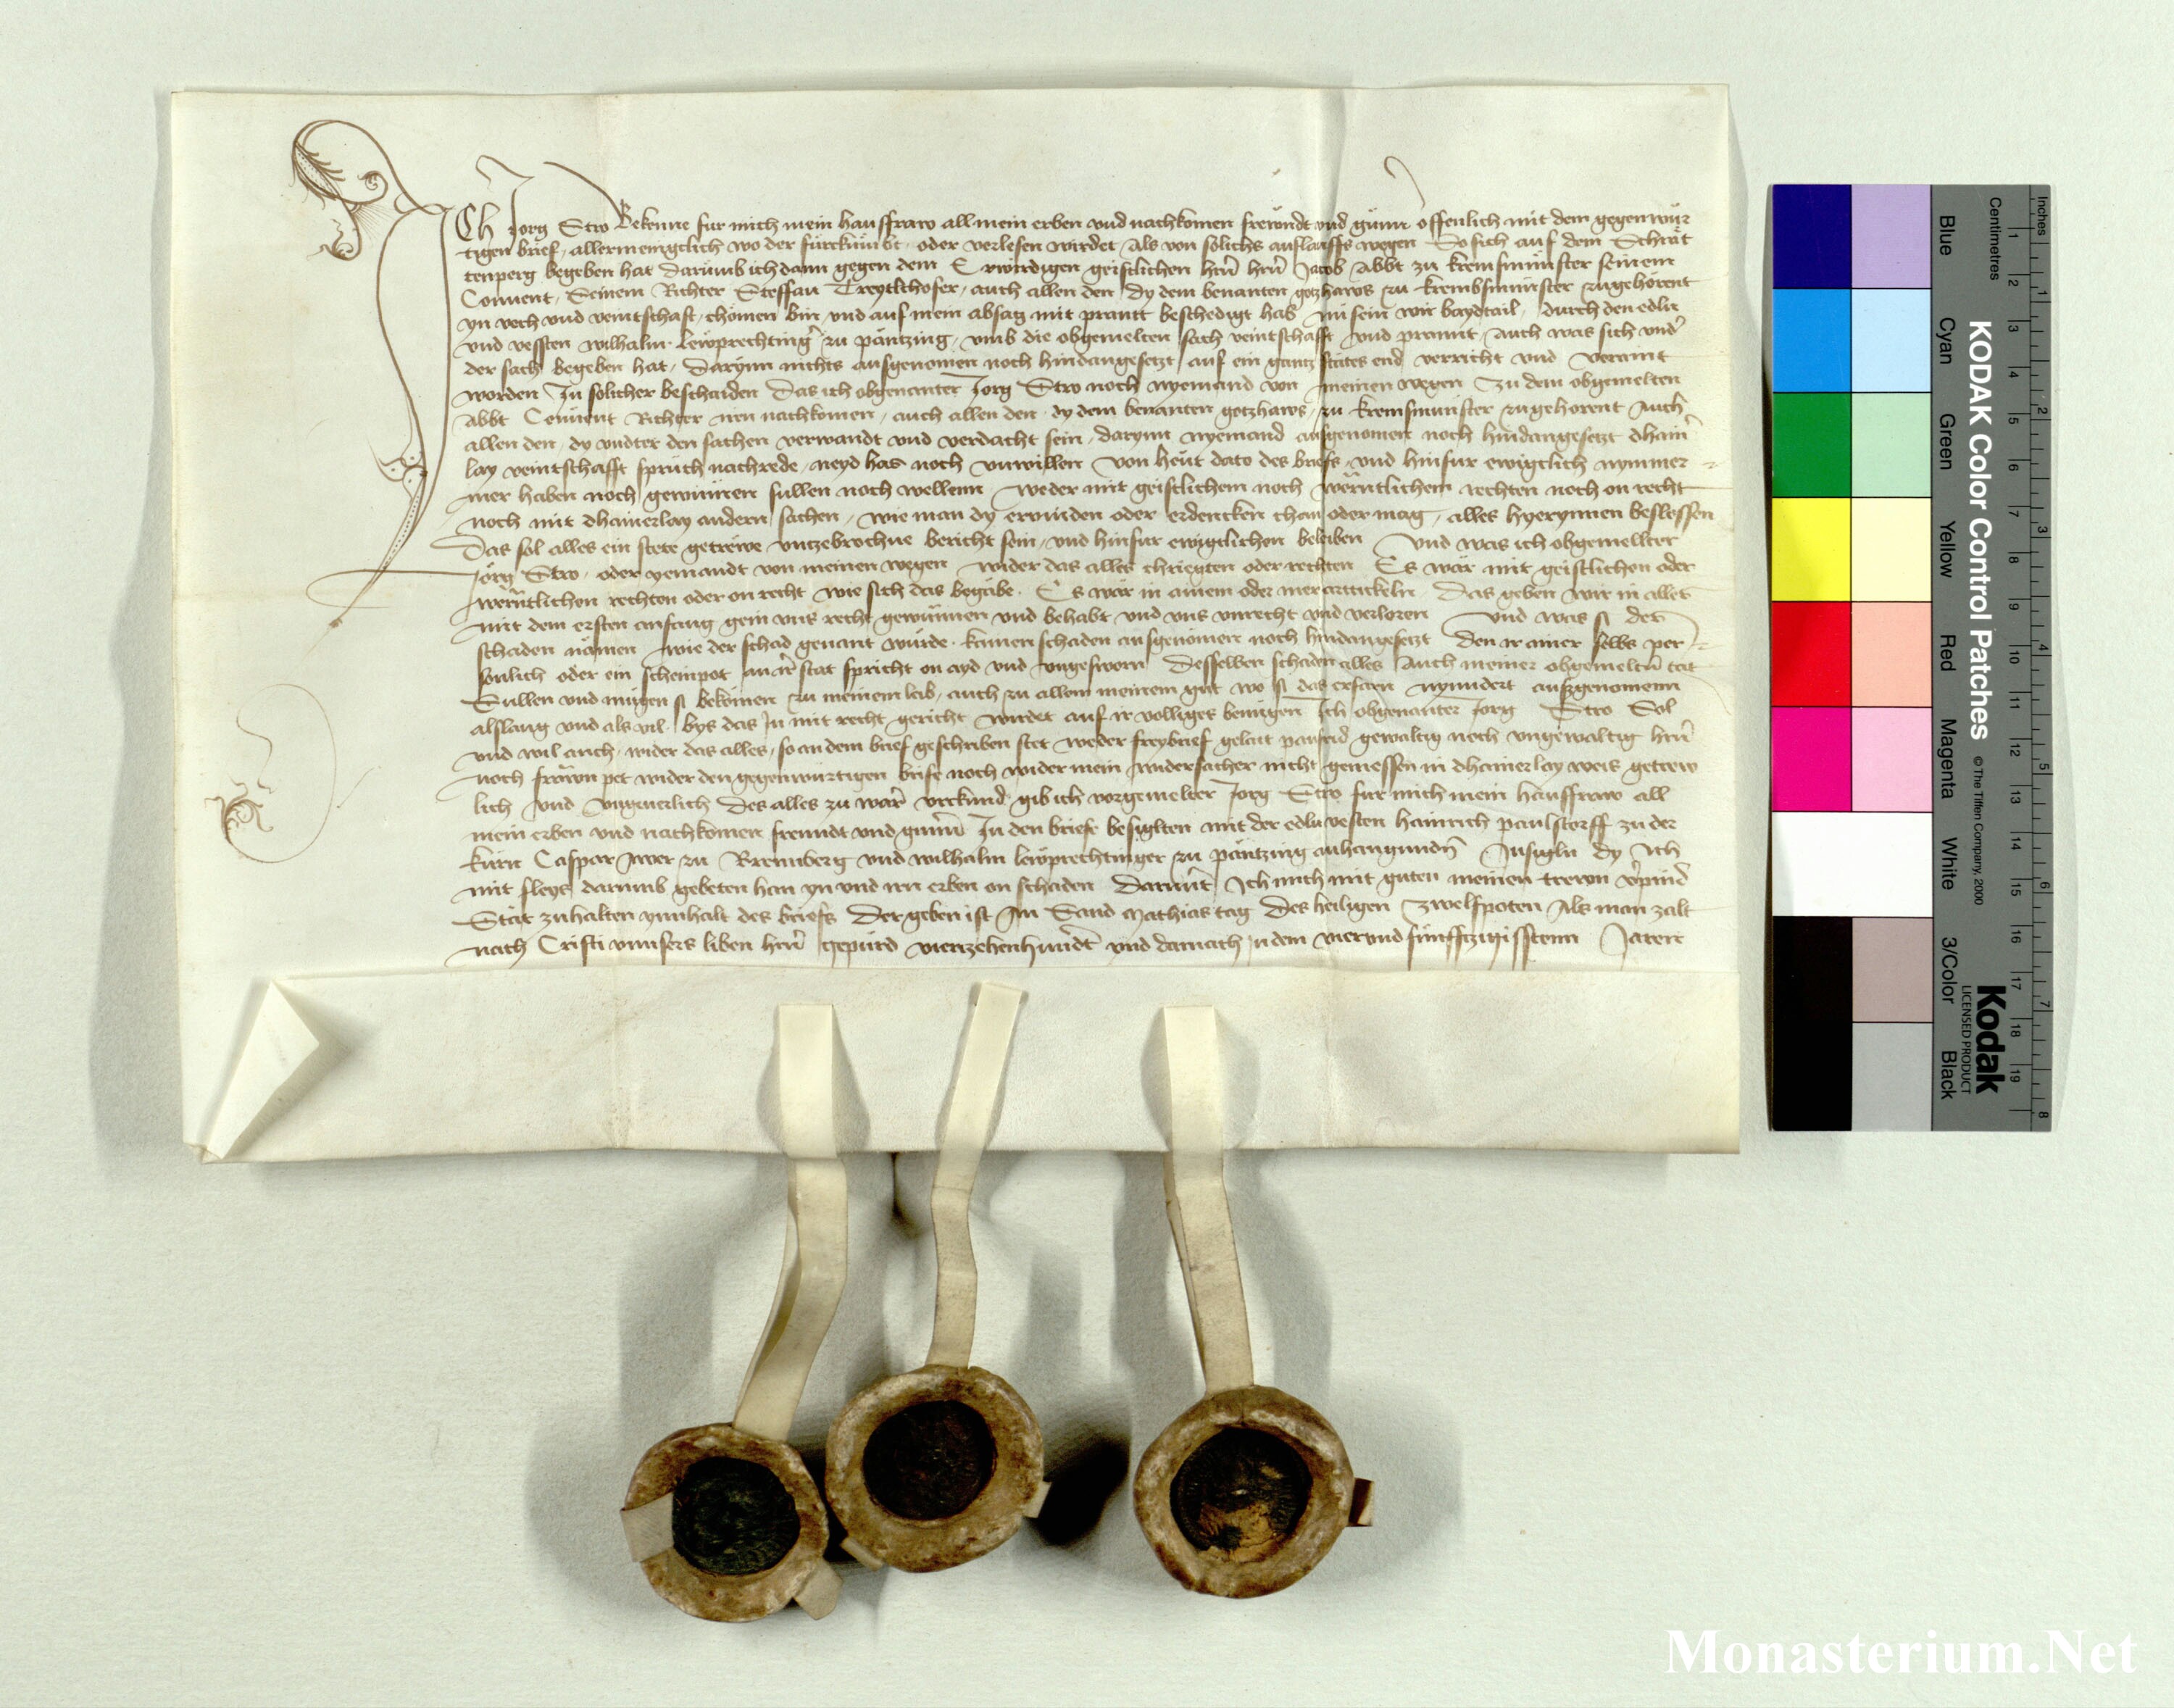 ICh Jorg Stro Bekenne fur mich mein hausfraw all mein erben vnd nachkomen frewndt vnd günr offenlich mit dem gegenwür
tigen brief allermenigclich wo der fürckumbt oder verlesen wirdet Als von solichs auflauffs wegen So sich auf dem Schrät
tenperg begeben hat darumb ich dann gegen dem Erwirdigen geistlichen hrn hrn Jacob Abbt zu kremsmünster seinem
Conuent Seinem Richter Steffan Treytlthofer auch allen den dy dem benanten gotzhaws zu krembsmünster zugehörent
yn vech vnd veintschaft chömen bin vnd auf mein absag mit prannt beschedigt hab nu sein wir baydtail durch den edln
und vessten wilhalm lewprechting zu päntzing vmb die obgemelten sach veintschafft vnd prannt auch was sich vnd
der sach begeben hat darynn nichts ausgenomen noch hindangesetzt auf ein gantz stätes end verricht vnd veraint
worden Jn solicher beschaiden Das ich obgenanter Jorg Stro noch nyemand von meinen wegen Zu dem obgemelten
Abbt Conuent Richter iren nachkomen auch allen den dy dem benanten gotzhaws zu kremsmunster zugehorent Auch
allen den dy vndter den sachen verwandt vnd verdacht sein darynn nyemand ausgenomen noch hindangesetzt dhain
lay veintschafft sprüch nachrede neyd has noch vnwillen von heut dato des briefs vnd hinfur ewigclich nymmer
mer haben noch gewinnen sullen noch wellenn weder mit geistlichem noch werntlichem rechten noch on recht
noch mit dhainerlay andern sachen wie man dy ervinden oder erdencken chan oder mag alles hyerynnen beslossen
Das sol alles ein stete getrewe vntzebrochne bericht sein vnd hinfur ewigclichen beleiben Vnd was ich obgemellter
Jorg Stro oder yemandt von meinen wegen wider das alles chriegten oder rechten Es wär mit geistlichen oder
werntlichen rechten oder on recht wie sich das begäbe Es wär in ainem oder mer artickeln Das geben wir in alles
mit dem ersten anfang gein vns recht gewunnen vnd behabt vnd vns vnrecht vnd verloren Vnd was sy des
schaden nämen wie der schad genant würde kainen schaden ausgenomen noch hindangesetzt den ir ainer selbs per
sönlich oder ein scheinpot an ir stat spricht on ayd vnd vngesworn desselben schaden alles Auch meiner obgemeltn tat
Sullen vnd mügen sy bekömen zu meinem lab auch zu allem meinem gut wo sy das erfarn nyndert ausgenomenn
alslang vnd als vil bys das Jn mit recht gericht wirdet auf ir volligs benügen Ich obgenanter Jorg Stro Sol
vnd wil auch wider das alles so an dem brief geschriben stet weder freybrief gelait panfrid gewaltig noch vngewaltig hrn
noch fräwn pet wider den gegenwürtigen briefe noch wider mein widersacher nicht geniessen in dhainerlay weis getrew
lich vnd vngeuerlich Des alles zu war vrckund gib ich vorgemelter Jorg Stro fur mich mein hausfraw all
mein erben vnd nachkomen freundt vnd günner Jn den briefe besiglten mit der edln vesten hainrich paulstorff zu der
kürn Caspar Awer zu Brennberg vnd wilhalm lewprechtinger zu päntzing anhangundn Jnsigln dy Ich
mit fleys darumb gebeten han yn vnd irn erben on schaden Darundter Ich mich mit guten meinen trewn vpind
Stät zuhalten ynnhalt des briefs Der geben ist Am Sand Mathias tag Des heiligen Zwelfpoten Als man zalt
nach Cristi vnnsers liben hrn gepurd vierzehenhundert vnd darnach in dem viervndfünffzigisstenn Jaren
KODAK Color Control Patches
© The Tiffen Company, 2000
Kodak
LICENSED PRODUCT
Inches
Centimetres
Blue
Cyan
Green
Yellow
Red
Magenta
White
3/Color
Black
Monasterium.Net